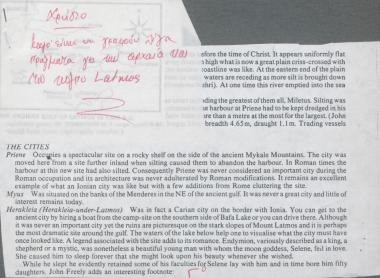 Χρήστο
Καλό είναι να γραφούν λίγα
πράγματα για την αρχαία
του Latmos
efore the time of Christ. It appears uniformly flat
high what is now a great plain criss-crossed with
coastline was like. At the eastern end of the plain
waters are receding as more silt is brought down
ght). At one time this river emptied into the sea
ding the greatest of them all, Miletus. Silting was
t harbour at Priene had to be kept dredged in his
re than a metre at the most for the largest. (John
breadth 4.65m, draught 1.1m. Trading vessels
THE CITIES
Priene Occupies a spectacular site on a rocky shelf on the side of the ancient Mykale Mountains. The city was
moved here from a site further inland when silting caused them to abandon the harbour. In Roman times the
harbour at this new site had also silted. Consequently Priene was never considered an important city during the
Roman occupation and its architecture was never adulterated by Roman modifications. It remains an excellent
example of what an Ionian city was like but with a few additions from Rome cluttering the site.
Myus Was situated on the banks of the Menderes in the NE of the ancient gulf. It was never a great city and little of
interest remains today.
Herakleia (Herakleia-under-Latmos) Was in fact a Carian city on the border with Ionia. You can get to the
ancient city by hiring a boat from the camp-site on the southern side of Bafa Lake or you can drive there. Although
it was never an important city yet the ruins are picturesque on the stark slopes of Mount Latmos and it is perhaps
the most dramatic site around the gulf. The waters of the lake below help one to visualise what the city must have
once looked like. A legend associated with the site adds to its romance. Endymion, variously described as a king, a
shepherd or a mystic, was nonetheless a beautiful young man with whom the moon goddess, Selene, fell in love.
She caused him to sleep forever that she might look upon his beauty whenever she wished.
While he slept he evidently retained some of his faculties for Selene lay with him and in time bore him fifty
daughters. John Freely adds an interesting footnote: